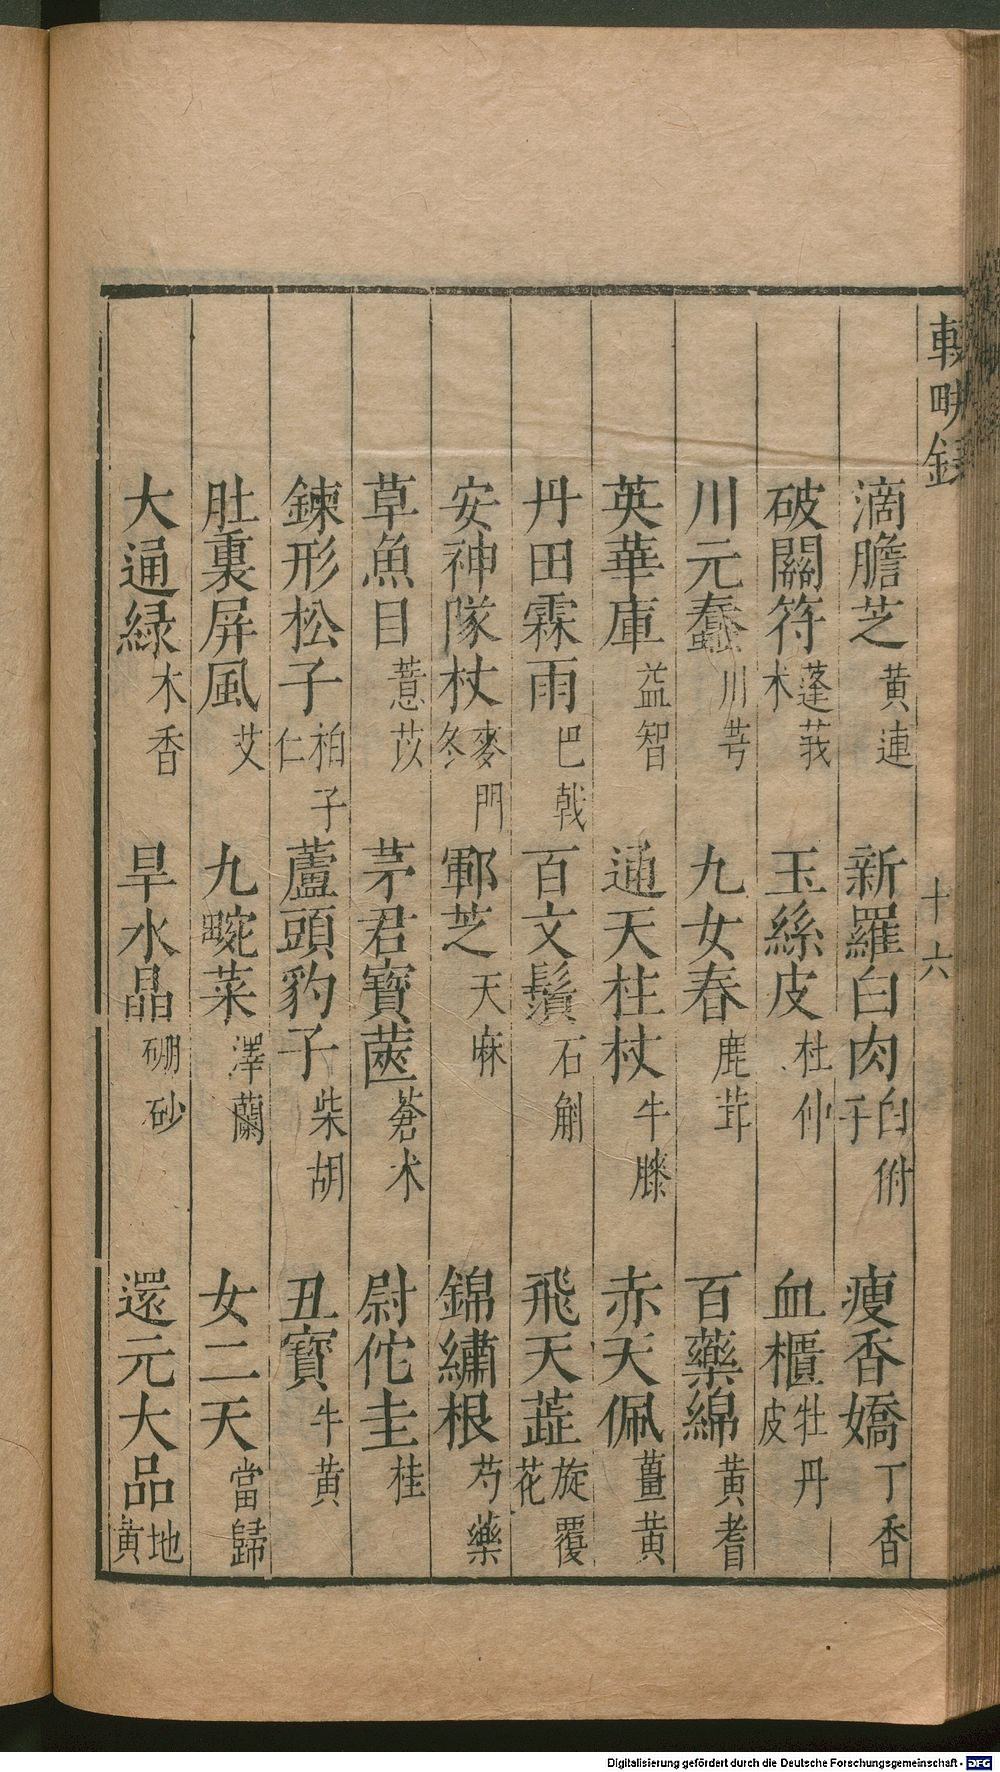 滴膽芝黃連　新羅白肉白附子　瘦香嬌丁香
破關符蓬莪朮　玉絲皮杜仲　血櫃牡丹皮
川元蠢川芎　九女春鹿茸　百藥綿黃耆
英華庫益智　通天柱杖牛膝　赤天佩薑黃
丹田霖雨巴戟　百丈鬚石斛　飛天蕋旋覆花
安神隊杖麥門冬　鄆芝天麻　錦繡根芍藥
草魚目薏苡　茅君寶莢蒼朮　尉佗圭桂
鍊形松子柏子仁　蘆頭豹子柴胡　丑寶牛黃
肚裏屏風艾　九畹菜澤蘭　女二天當歸
大通綠木香　旱水晶硼砂　還元大品地黃
十六
Digitalisierung gefördert durch die Deutsche Forschungsgemeinschaft - DFG